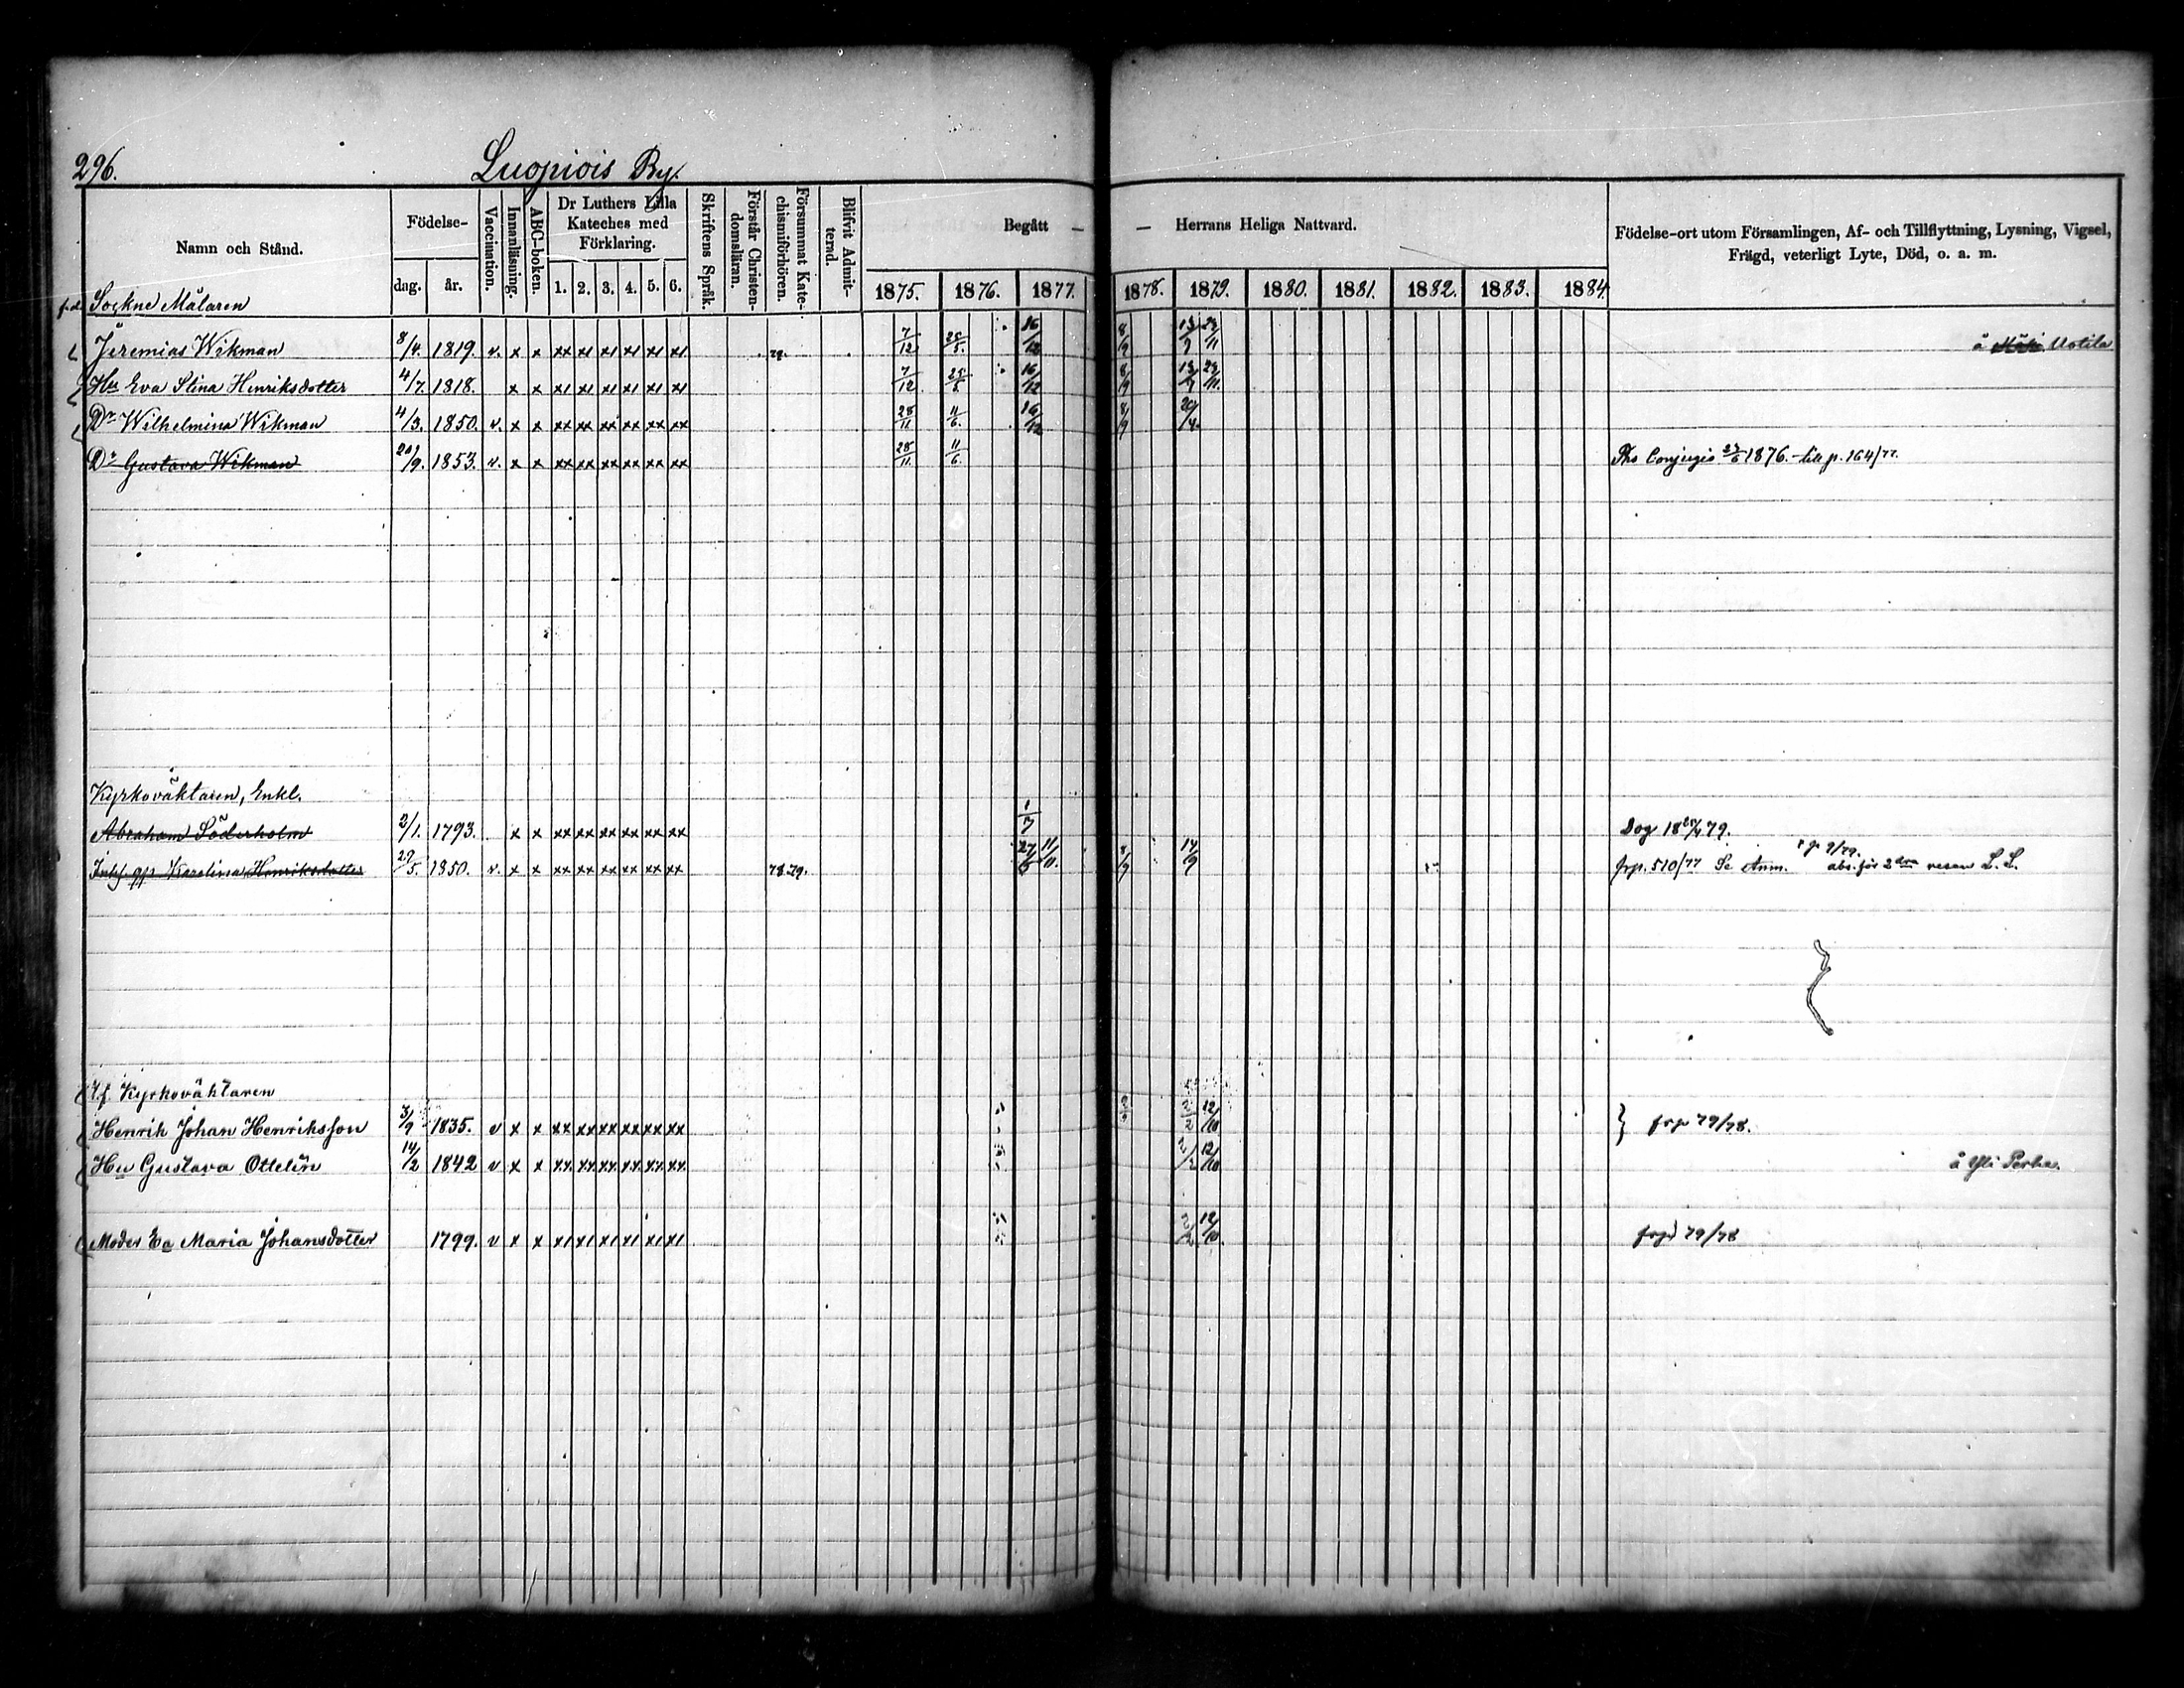 296.
Luopiois By.
Namn och Stånd.
Födelse-
dag.
år.
Vaccination.
Innanläsning.
ABC-boken.
Dr Luthers Lilla
Kateches med
Förklaring.
1. 2. 3. 4. 5. 6.
Skriftens Språk.
Förstår Christen-
domsläran.
Försummat Kate-
chismiförhören.
Blifvit Admit-
terad.
Begått — — Herrans Heliga Nattvard.
1875. 1876. 1877. 1878. 1879. 1880. 1881. 1882. 1883. 1884.
Födelse-ort utom Församlingen, Af- och Tillflyttning, Lysning, Vigsel,
Frägd, veterligt Lyte, Död, o. a. m.
f.d. Sockne Målaren
Jeremias Wikman 8/4. 1819. v. x x x1 x1 x1 x1 x1 79. 7/12 25/5. 16/12 8/9 13/9 23/11 å Uotila
Hu Eva Stina Henriksdotter 4/7. 1818. x x x1 x1 x1 x1 x1 x1 7/12 25/5. 16/12 8/9 13/9 23/11.
Dr Wilhelmina Wikman 4/3. 1850. v. x x xx xx xx xx xx xx 28/11 11/6. 16/12 8/9 20/4.
Dr Gustava Wikman 20/9. 1853. v. x x xx xx xx xx xx xx 28/11. 11/6. Conjugis 23/6 1876. - till p. 164/77.
Kyrkoväktaren, Enkl.
Abraham Söderholm 2/1. 1793. x x xx xx xx xx xx xx 1/7 Dog 18 79.
Karolina Henriksdotter 29/5. 1850. v. x x xx xx xx xx xx xx 78.79. 27/6 11/11. 8/9 14/9 frp. 510/77 Se Anm. abs. för 2dra resan L. L.
T.f. Kyrkoväktaren
Henrik Johan Henriksson 3/9 1835. v x x xx xx xx xx xx xx 2/2 12/10 } frp 79/78.
Hu Gustava Ottelin 14/2 1842 v x x xx xx xx xx xx xx 2/2 12/10 å Yli Perhe.
Moder Ea Maria Johansdotter 1799. v x x x1 x1 x1 x1 x1 x1 2/2 12/10 frp 79/78